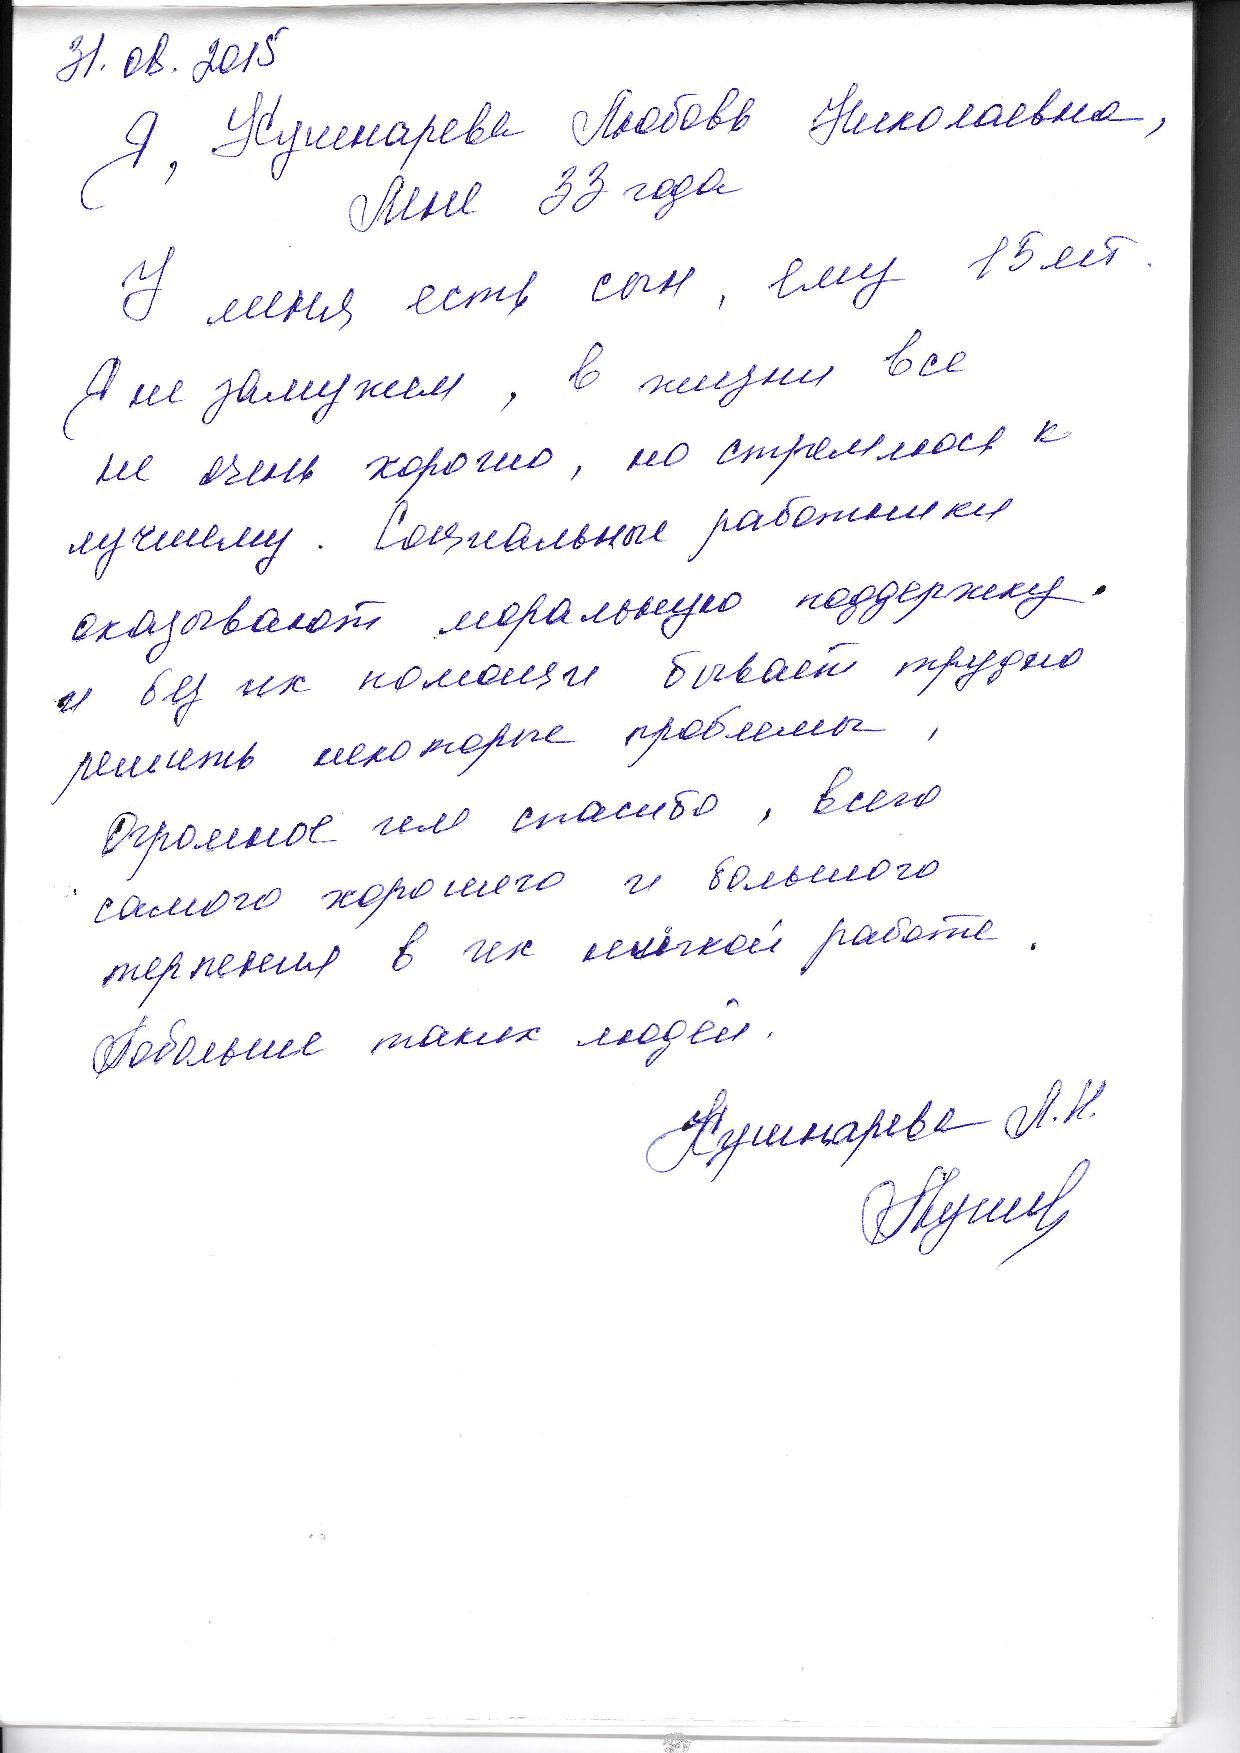 31. 08. 2015
Я, Кушнарева Любовь Николаевна,
Мне 33 года
У меня есть сын, ему 15 лет.
Я не замужем, в жизни все
не очень хорошо, но стремлюсь к
лучшему. Социальные работники
оказывают моральную поддержку.
и без их помощи бывает трудно
решить некоторые проблемы,
Огромное им спасибо, всего
самого хорошего и большого
терпения в их работе.
Побольше таких людей.
Кушнарева Л.Н.